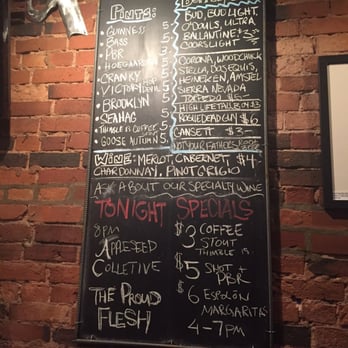 PINTS:
GUINNESS 5
BASS 5
PBR 3
HOEGAARDEN 5
CRANKY 5
VICTORY HOP DEVIL 5
BROOKLYN 5
SEAHAG 5
THIMBLE IS COFFEE 5
GOOSE AUTUMN 5
BUD, BUD LIGHT
O'DOULS, ULTRA
BALLANTINE $3
COORSLIGHT
CORONA, WOODCHUCK
STELLA, DOS EQUIS,
HEINEKEN, AMSTEL
SIERRA NEVADA
TORPEDO $5
HIGH LIFE TALLBOY
ROGUE DEAD GUY $6
GANSETT $3
NOT YOUR FATHERS ROOT BEER
WINE: MERLOT, CABERNET, $4
CHARDONNAY, PINOT GRIGIO
ASK ABOUT OUR SPECIALTY WINE
TONIGHT SPECIALS
8PM
APPLESEED
COLLETIVE
THE PROUD
FLESH
$3 COFFEE
STOUT
THIMBLE IS
$5 SHOT +
PBR
$6 ESPOLÓN
MARGARITAS
4-7PM